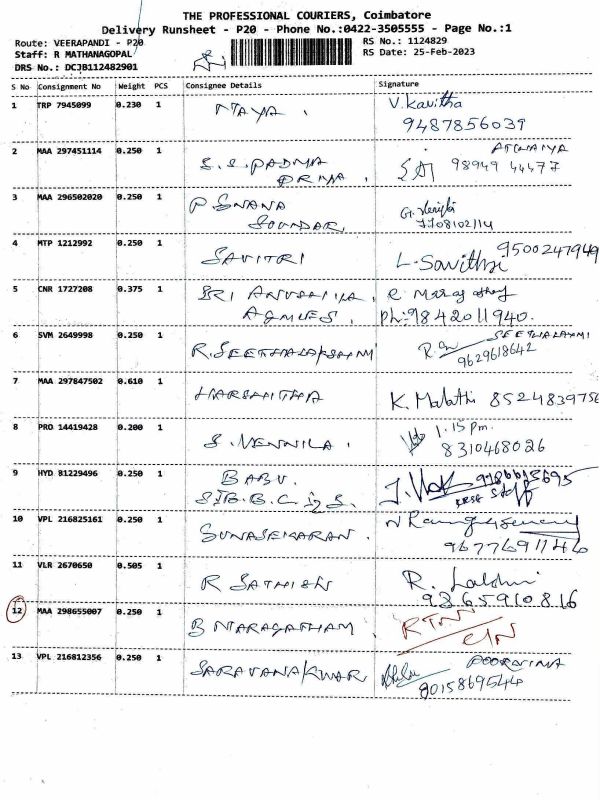 THE PROFESSIONAL COURIERS, Coimbatore
Delivery Runsheet - P20 - Phone No.:0422-3505555 - Page No.:1
Route: VEERAPANDI - P20
RS No.: 1124829
Staff: R MATHANAGOPAL
RS Date: 25-Feb-2023
DRS No.: DCJB112482901
S No Consignment No Weight PCS Consignee Details Signature
1 TRP 7945099 0.230 1 MAYA. V. Kavitha
9487856039
2 MAA 297451114 0.250 1 S. S. PADMA
PRIYA. 98949 44477
3 MAA 296502020 0.250 1 P GNANA
SOUNDARI
7708102114
4 MTP 1212992 0.250 1 SAVITRI L. Savithri 9500247949
5 CNR 1727208 0.375 1 SRI ANUSHIYA
AGENCIES. Ph: 9842011940.
6 SVM 2649998 0.250 1 R. SEETHALAKSHMI SEETHALAXMI
9629618642
7 MAA 297847502 0.610 1 HARSHITHA K. Malathi 8524839756
8 PRO 14419428 0.200 1 S. VENNILA. 1.15 pm.
8310468026
9 HYD 81229496 0.250 1 BABU.
Staff
10 VPL 216825161 0.250 1 GUNASEKARAN.
9677691146
11 VLR 2670650 0.505 1 R SATHISH R. Lakshmi
9365910816
12 MAA 298655007 0.250 1 B MARAGATHAM. RTN
C/N
13 VPL 216812356 0.250 1 SARAVANAKUMAR POORNIMA
8015869544